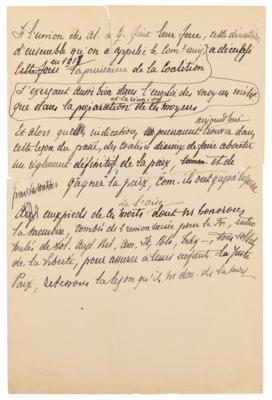 Si l'union des Al. a fait leur force, cette direction
d'ensemble qu'on a appelée le com. uniq a décuplé
cette force en 1918 la puissance de la coalition
S'exerçant aussi bien dans l'emploi des moyens
que dans la préparation de ces moyens
et la réunion
aujourd'hui
Et alors quelle indication peuvent trouver dans
cette leçon du passé, des coalisés pour aboutir
au règlement définitif de la paix et de
gagner la paix, com. ils ont gagné la guerre
de l'Oise
Aux pieds de ces morts dont ns honorons
la mémoire, tombés de l'union sacrée pour la Fr., entre
mêlés de sol. Angl. Bel, Am, It, Polo, Tchq -, tous soldats
de la Liberté, pour assurer à leurs enfants la Juste
Paix, recevons la leçon qu'ils ns don. de la faire